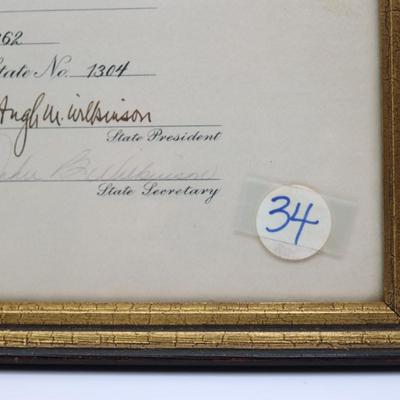 862
State No. 1304
Hugh M. Wilkinson
State President
B. Wilkinson
State Secretary
34